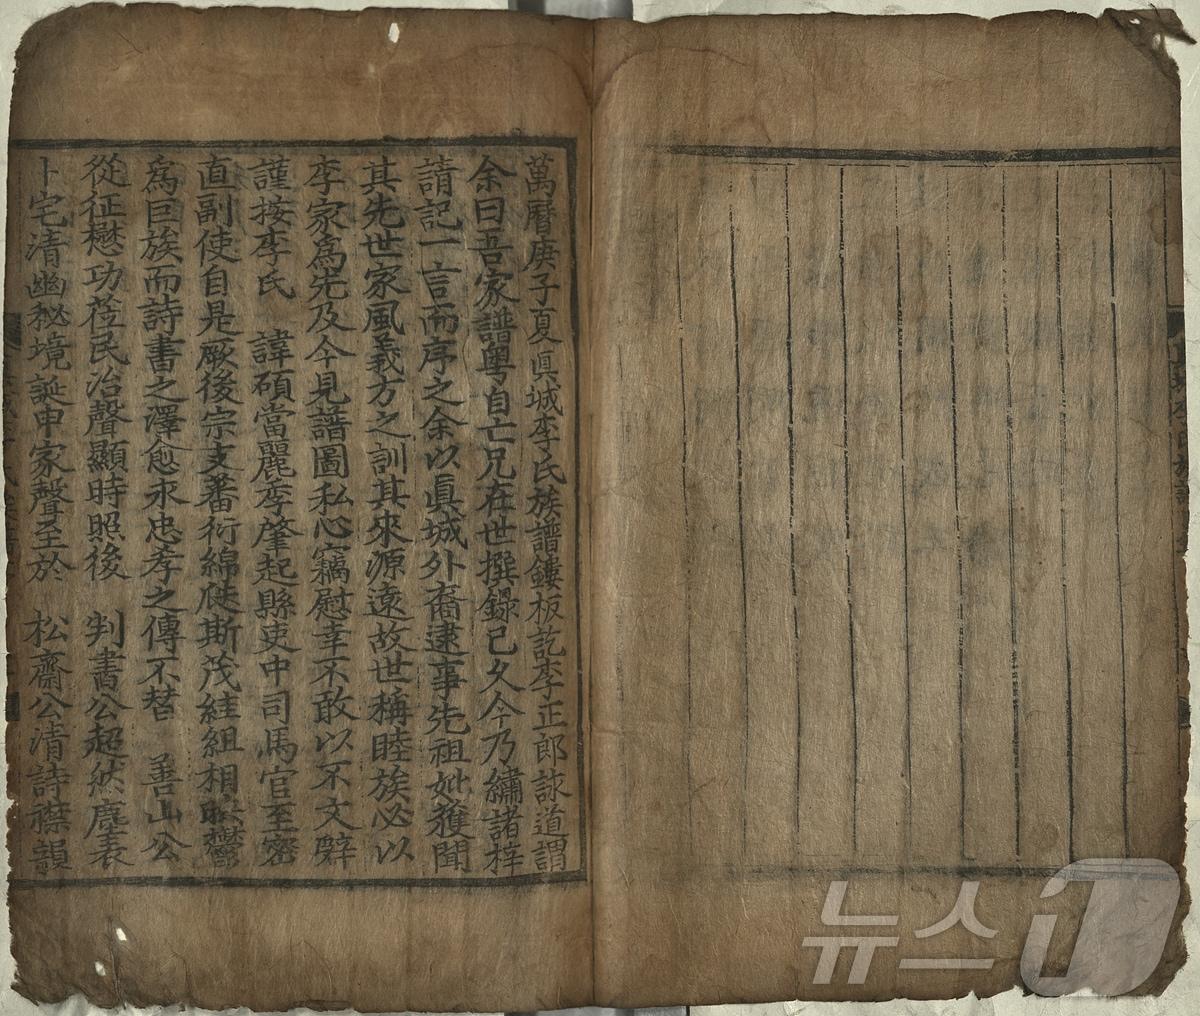 萬曆庚子夏眞城李氏族譜鏤板訖李正郎詠道謂
余曰吾家譜粤自亡兄在世撰錄已久今乃繡諸梓
請記一言而序之余以眞城外裔逮事先祖妣獲聞
其先世家風義方之訓其來源遠故世稱睦族必以
李家爲先及今見譜圖私心竊慰幸不敢以不文辭
謹按李氏 諱碩當麗季肇起縣吏中司馬官至密
直副使自是厥後宗支蕃衍綿綿斯茂絓組相
爲巨族而詩書之澤愈永忠孝之傳不替 善山公
從征懋功莅民治聲顯時照後 判書公超然塵表
卜宅清幽秘境誕申家聲至於 松齋公清詩襟韻
뉴스1